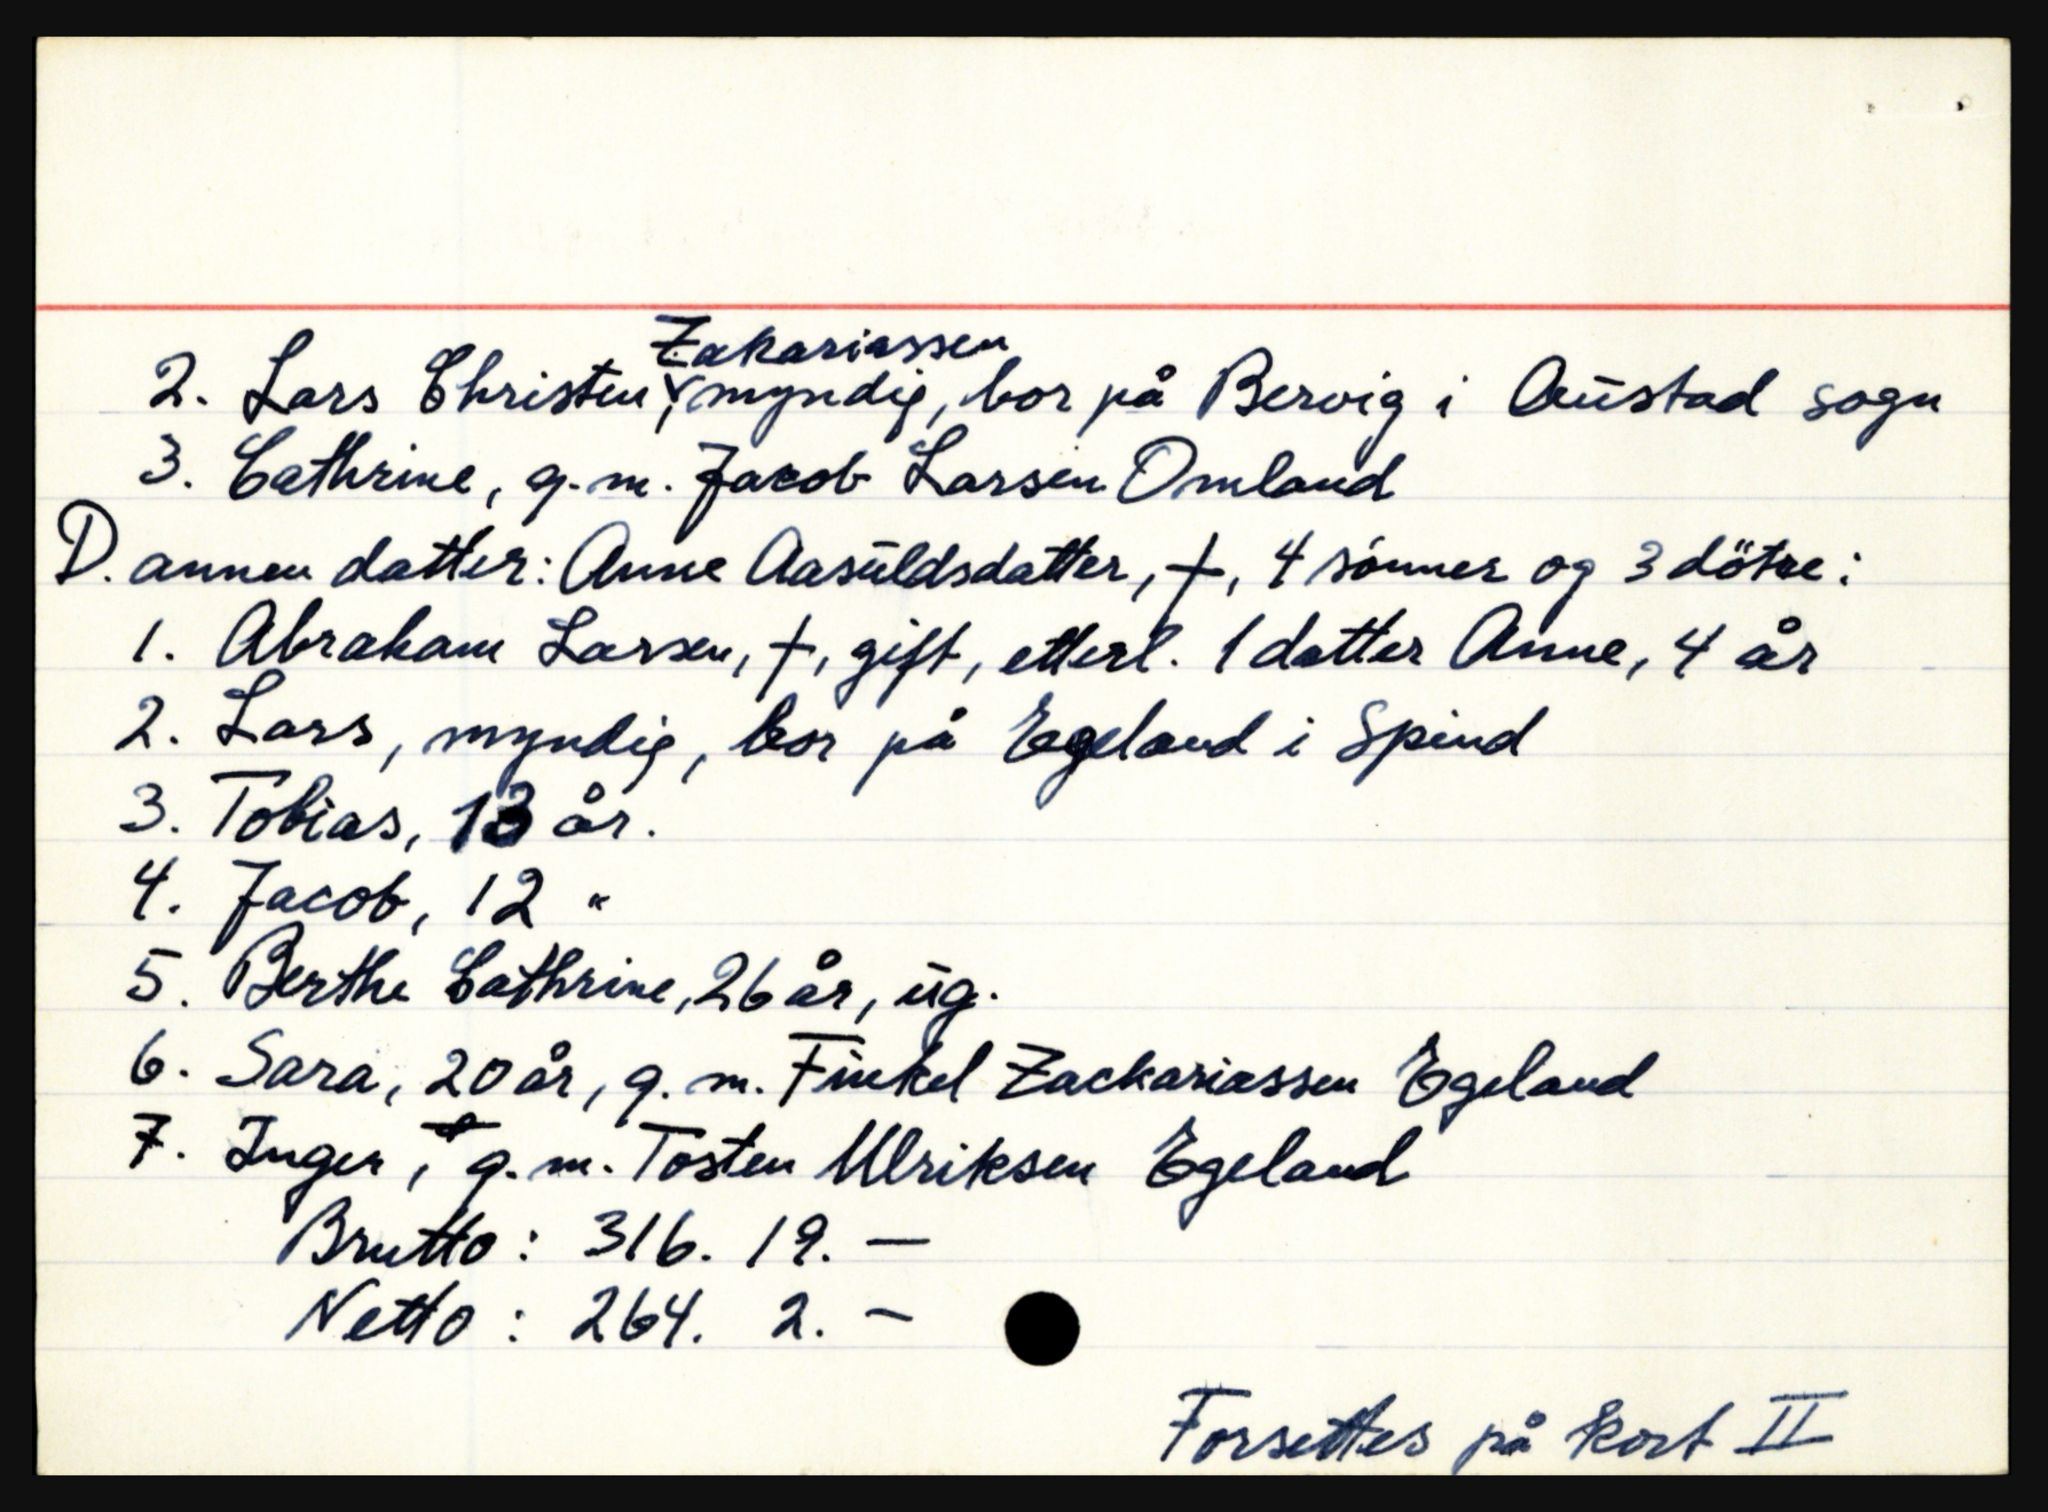 Zakariassen
2. Lars Christen, myndig, bor på Bervig i Austad sogn
3. Cathrine, g.m. Jacob Larsen Omland
D. annen datter: Anne Aasuldsdatter, †, 4 sønner og 3 døtre:
1. Abraham Larsen, †, gift, etterl. 1 datter Anne, 4 år
2. Lars, myndig, bor på Egeland i Spind
3. Tobias, 13 år.
4. Jacob, 12 "
5. Berthe Cathrine, 26 år, ug.
6. Sara, 20 år, g.m. Finkel Zackariassen Egeland
7. Inger, g.m. Tosten Ulriksen Egeland
Brutto: 316. 19. —
Netto: 264. 2. –
Forsettes på kort II